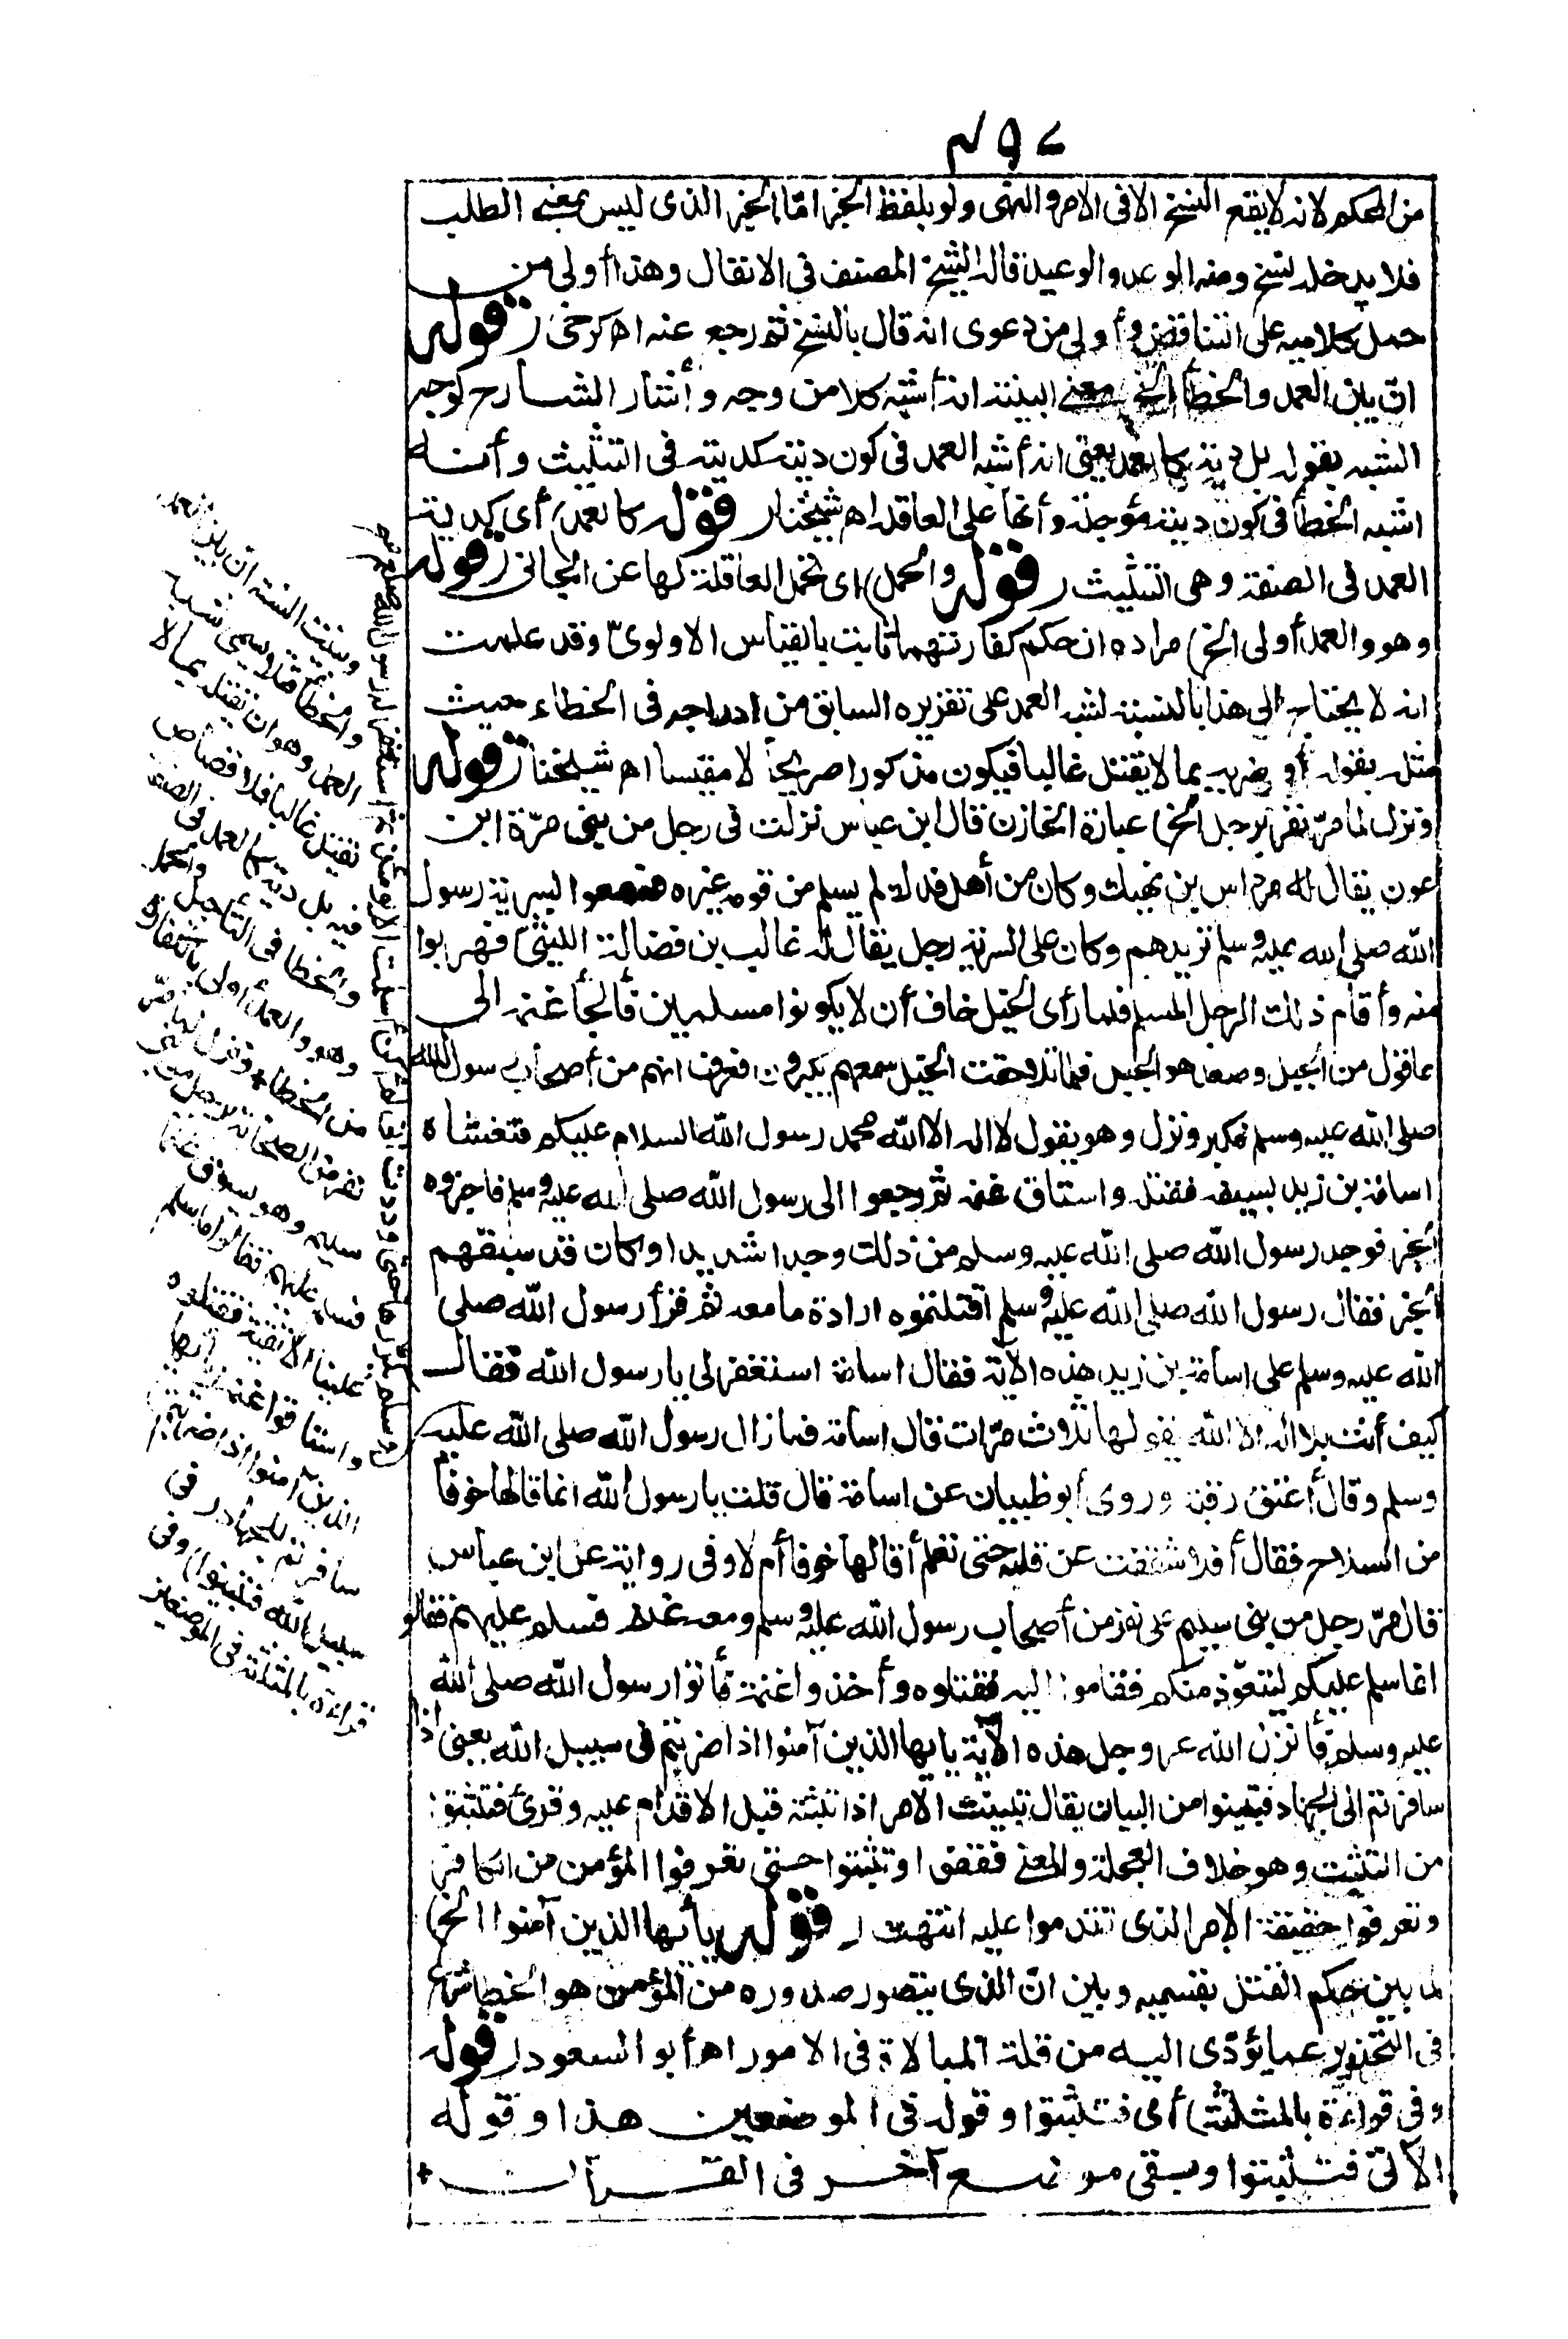 من المحكم لانه لا يقع النسخ الا فى الامر والنهى ولو بلفظ الخبر امّا الخبر الذى ليس بمعنى الطلب
فلا يدخله نسخ ومنه الوعد والوعيد قاله الشيخ المصنف فى الاتقان وهذا أولى من
حمل كلاميه على التناقض وأولى من دعوى انه قال بالنسخ ثم رجع عنه اه كرخى (قوله
انّ بين العمد والخطأ الخ) معنى البينة انه أشبه كلا من وجه وأشار الشارح لوجه
الشبه بقوله بل دية كالعمد يعنى انه أشبه العمد فى كون ديته كديته فى التثليث وأنه
اشبه الخطأ فى كون ديته مؤجلة وأنها على العاقلة اه شيخنا (قوله كالعمد) أى كدية
العمد فى الصفة وهى التثليث (قوله والحمل) اى تحمل العاقلة لها عن الجانى (قوله
وهو والعمد أولى الخ) مراده ان حكم كفارتهما ثابت بالقياس الاولوىّ وقد علمت
انه لا يحتاج الى هذا بالنسبة لشبه العمد على تقريره السابق من ادراجه فى الخطاء حيث
مثله بقوله أو ضربه بما لا يقتل غالبا فيكون مذكورا صريحا لا مقيسا اه شيخنا (قوله
ونزل لما مرّ نفر برجل الخ) عبارة الخازن قال ابن عباس نزلت فى رجل من بنى مرّة ابن
عون يقال له مرداس بن نهيك وكان من أهل فدك لم يسلم من قومه غيره فسمعوا بسرية رسول
الله صلى الله عليه وسلم تريدهم وكان على السرية رجل يقال له غالب بن فضالة الليثىّ فهربوا
منه وأقام ذلك الرجل المسلم فلما رأى الخيل خاف أن لا يكونوا مسلمين فألجأ غنمه الى
عاقول من الجبل وصعد هو الجبل فلما تلاحقت الخيل سمعهم يكبرون فعرف انهم من أصحاب رسول الله
صلى الله عليه وسلم فكبر ونزل وهو يقول لا اله الا الله محمد رسول الله السلام عليكم فتغشاه
اسامة بن زيد بسيفه فقتله واستاق غنمه ثم رجعوا الى رسول الله صلى الله عليه وسلم فاخبروه
الخبر فوجد رسول الله صلى الله عليه وسلم من ذلك وجدا شديدا وكان قد سبقهم
الخبر فقال رسول الله صلى الله عليه وسلم اقتلتموه ارادة ما معه ثم قرأ رسول الله صلى
الله عليه وسلم على اسامة بن زيد هذه الآية فقال اسامة استغفر لى يا رسول الله فقال
كيف أنت بلا اله الا الله يقولها ثلاث مرّات قال اسامة فما زال رسول الله صلى الله عليه
وسلم وقال أعتق رقبة وروى أبو ظبيان عن اسامة قال قلت يا رسول الله انما قالها خوفا
من السلاح فقال أفلا شققت عن قلبه حتى تعلم أقالها خوفا أم لا وفى رواية عن ابن عباس
قال مرّ رجل من بنى سليم على نفر من أصحاب رسول الله عليه وسلم ومعه غنم فسلم عليهم فقالوا
انما سلم عليكم ليتعوّذ منكم فقاموا اليه فقتلوه وأخذوا غنمه فأتوا رسول الله صلى الله
عليه وسلم فأنزل الله عز وجل هذه الآية يا يها الذين آمنوا اذا ضربتم فى سبيل الله يعنى اذا
سافرتم الى الجهاد فتبينوا من البيان يقال تبينت الامر اذا تبينته قبل الاقدام عليه وقرئ فتثبتوا
من التثبت وهو خلاف العجلة والمعنى فقفوا وتثبتوا حتى تعرفوا المؤمن من الكافر
وتعرفوا حقيقة الامر الذى تقدموا عليه انتهت (قوله يأيها الذين آمنوا الخ)
لما بين حكم القتل بقسميه وبين انّ الذى يتصور صدوره من المؤمن هو الخطأ شرع
فى التحذير عما يؤدّى اليه من قلة المبالاة فى الامور اه أبو السعود (قوله
وفى قراءة بالمثلثة) أى فتثبتوا وقوله فى الموضعين هذا وقوله
الآتى فتثبتوا وبقى موضع آخر فى القرآن
وبينت السنة ان بين العمد
والخطأ قتلا يسمى شبه
العمد وهو ان يقتله بما لا
يقتل غالبا فلا قصاص
فيه بل دية كالعمد فى الصفة
والخطا فى التأجيل والحمل
وهو والعمد أولى بالكفارة
من الخطا ونزل لما مرّ
نفر من الصحابة برجل من بنى
سليم وهو يسوق غنما
فسلم عليهم فقالوا ما سلم
علينا الا تقية فقتلوه
واستاقوا غنمه (يأيها
الذين آمنوا اذا ضربتم)
سافرتم للجهاد (فى
سبيل الله فتبينوا) وفى
قراءة بالمثلثة فى الموضعين